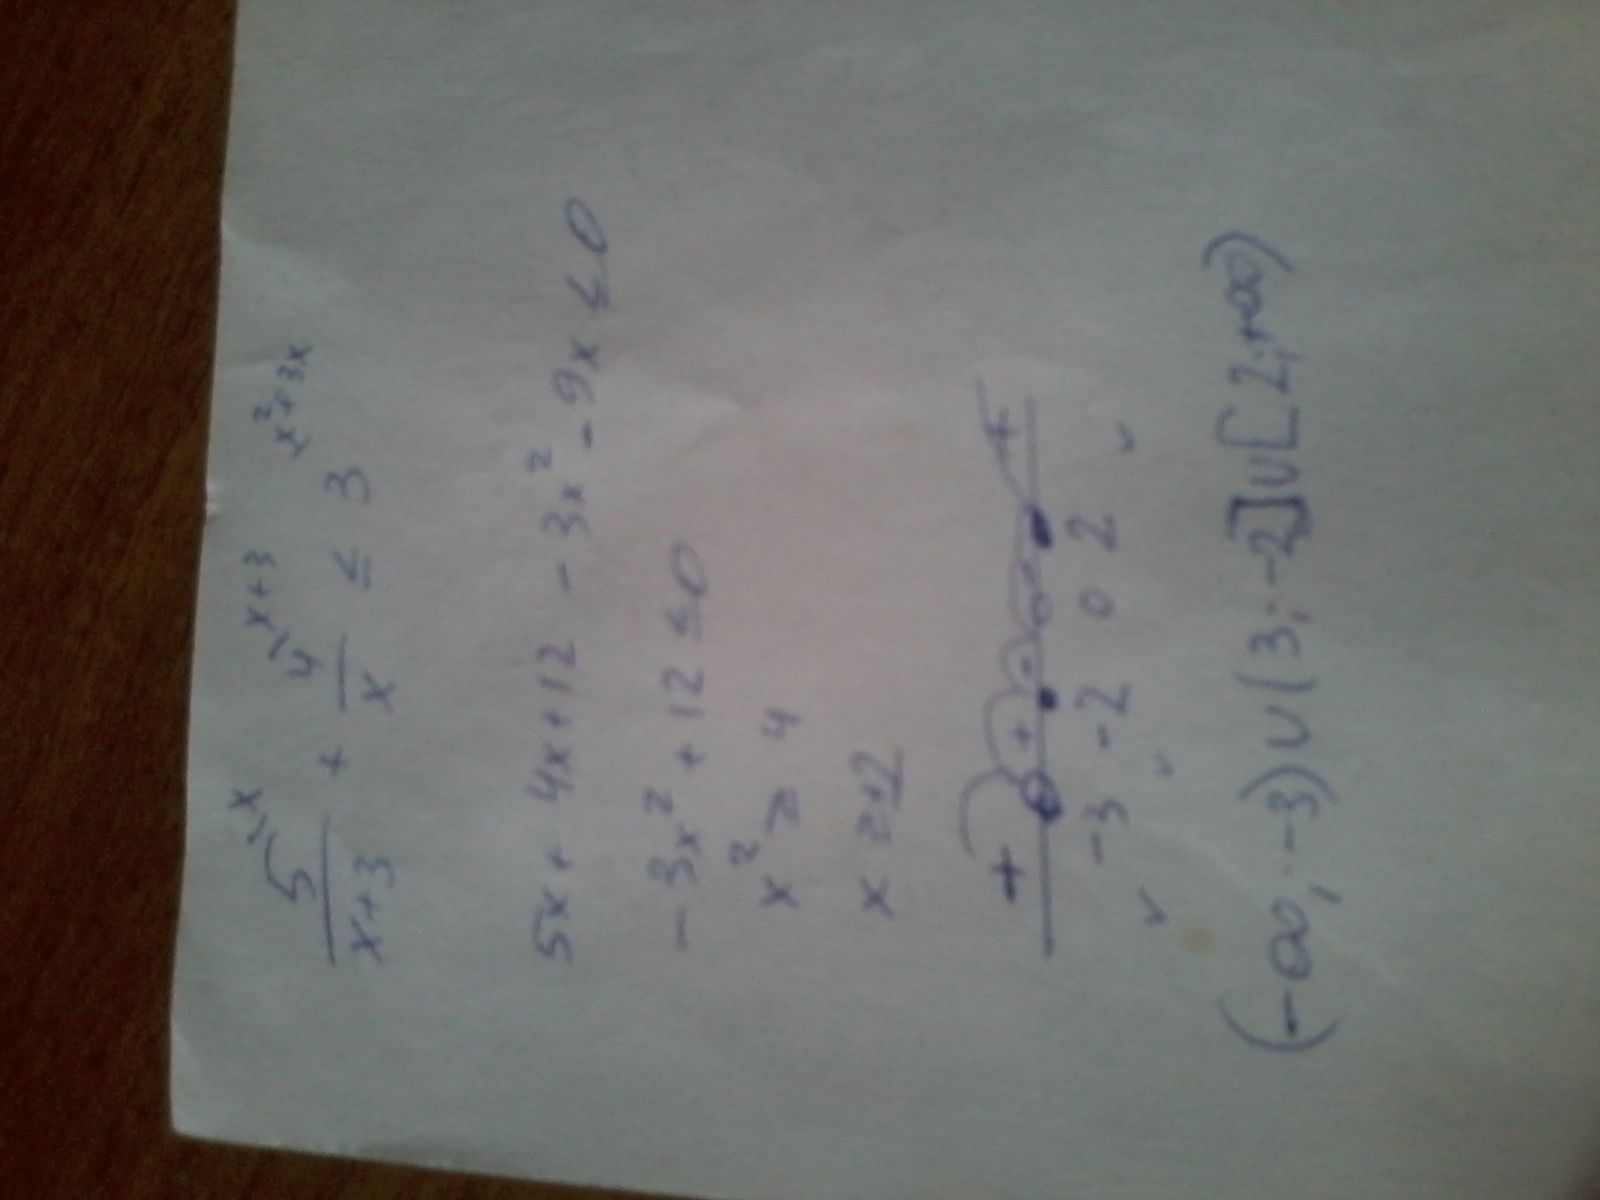 5⟍x / x+3 + 4⟍x+3 / x ≤ 3 x²+3x
5x + 4x+12 - 3x² - 9x ≤ 0
-3x² + 12 ≤ 0
x² ≥ 4
x ≥ ±2
+ + - - +
-3 -2 0 2
(-∞; -3) ∪ (3; -2] ∪ [2; +∞)